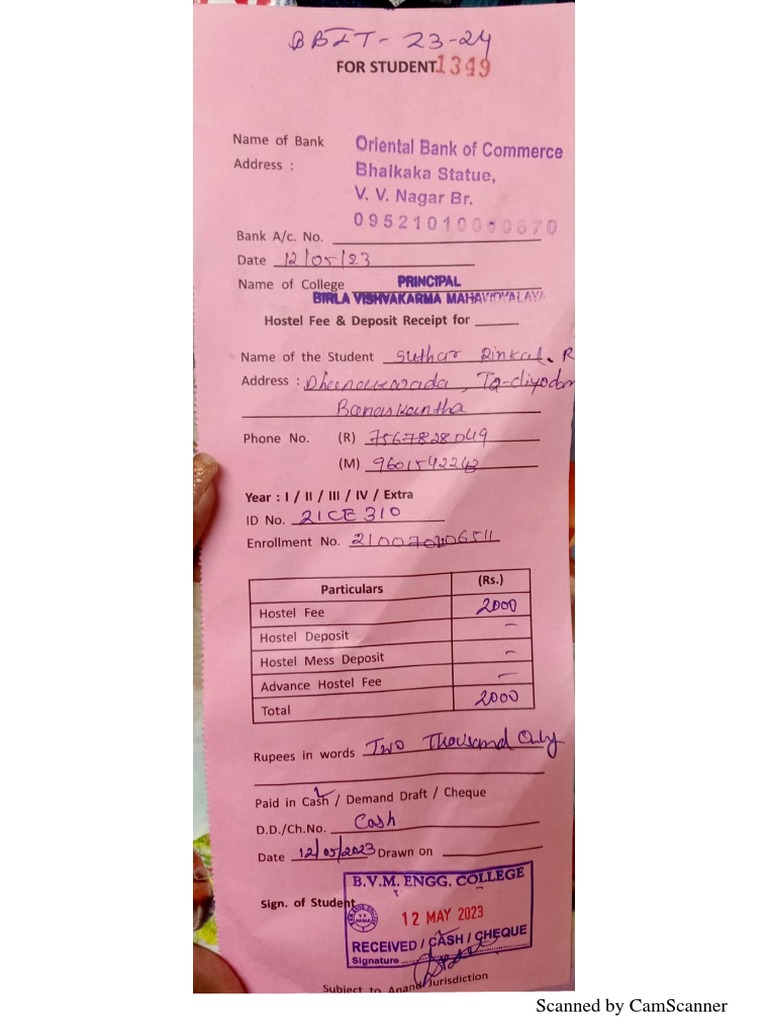 BBIT - 23-24
FOR STUDENT 1349
Name of Bank Oriental Bank of Commerce
Address : Bhalkaka Statue,
V. V. Nagar Br.
Bank A/c. No.
Date 12/05/23
Name of College PRINCIPAL
BIRLA VISHVAKARMA MAHAVIDYALAYA
Hostel Fee & Deposit Receipt for
Name of the Student Suthar Rinkal. R
Address :
Banaskantha
Phone No. (R) 7567828049
(M) 9601542243
Year : I / II / III / IV / Extra
ID No. 21CE310
Enrollment No.
Particulars (Rs.)
Hostel Fee 2000
Hostel Deposit -
Hostel Mess Deposit -
Advance Hostel Fee -
Total 2000
Rupees in words Two Thousand Only
Paid in Cash / Demand Draft / Cheque
D.D./Ch.No. Cash
Date 12/05/2023 Drawn on
B.V.M. ENGG. COLLEGE
Sign. of Student
12 MAY 2023
RECEIVED / CASH / CHEQUE
Signature
Subject to Anand Jurisdiction
Scanned by CamScanner